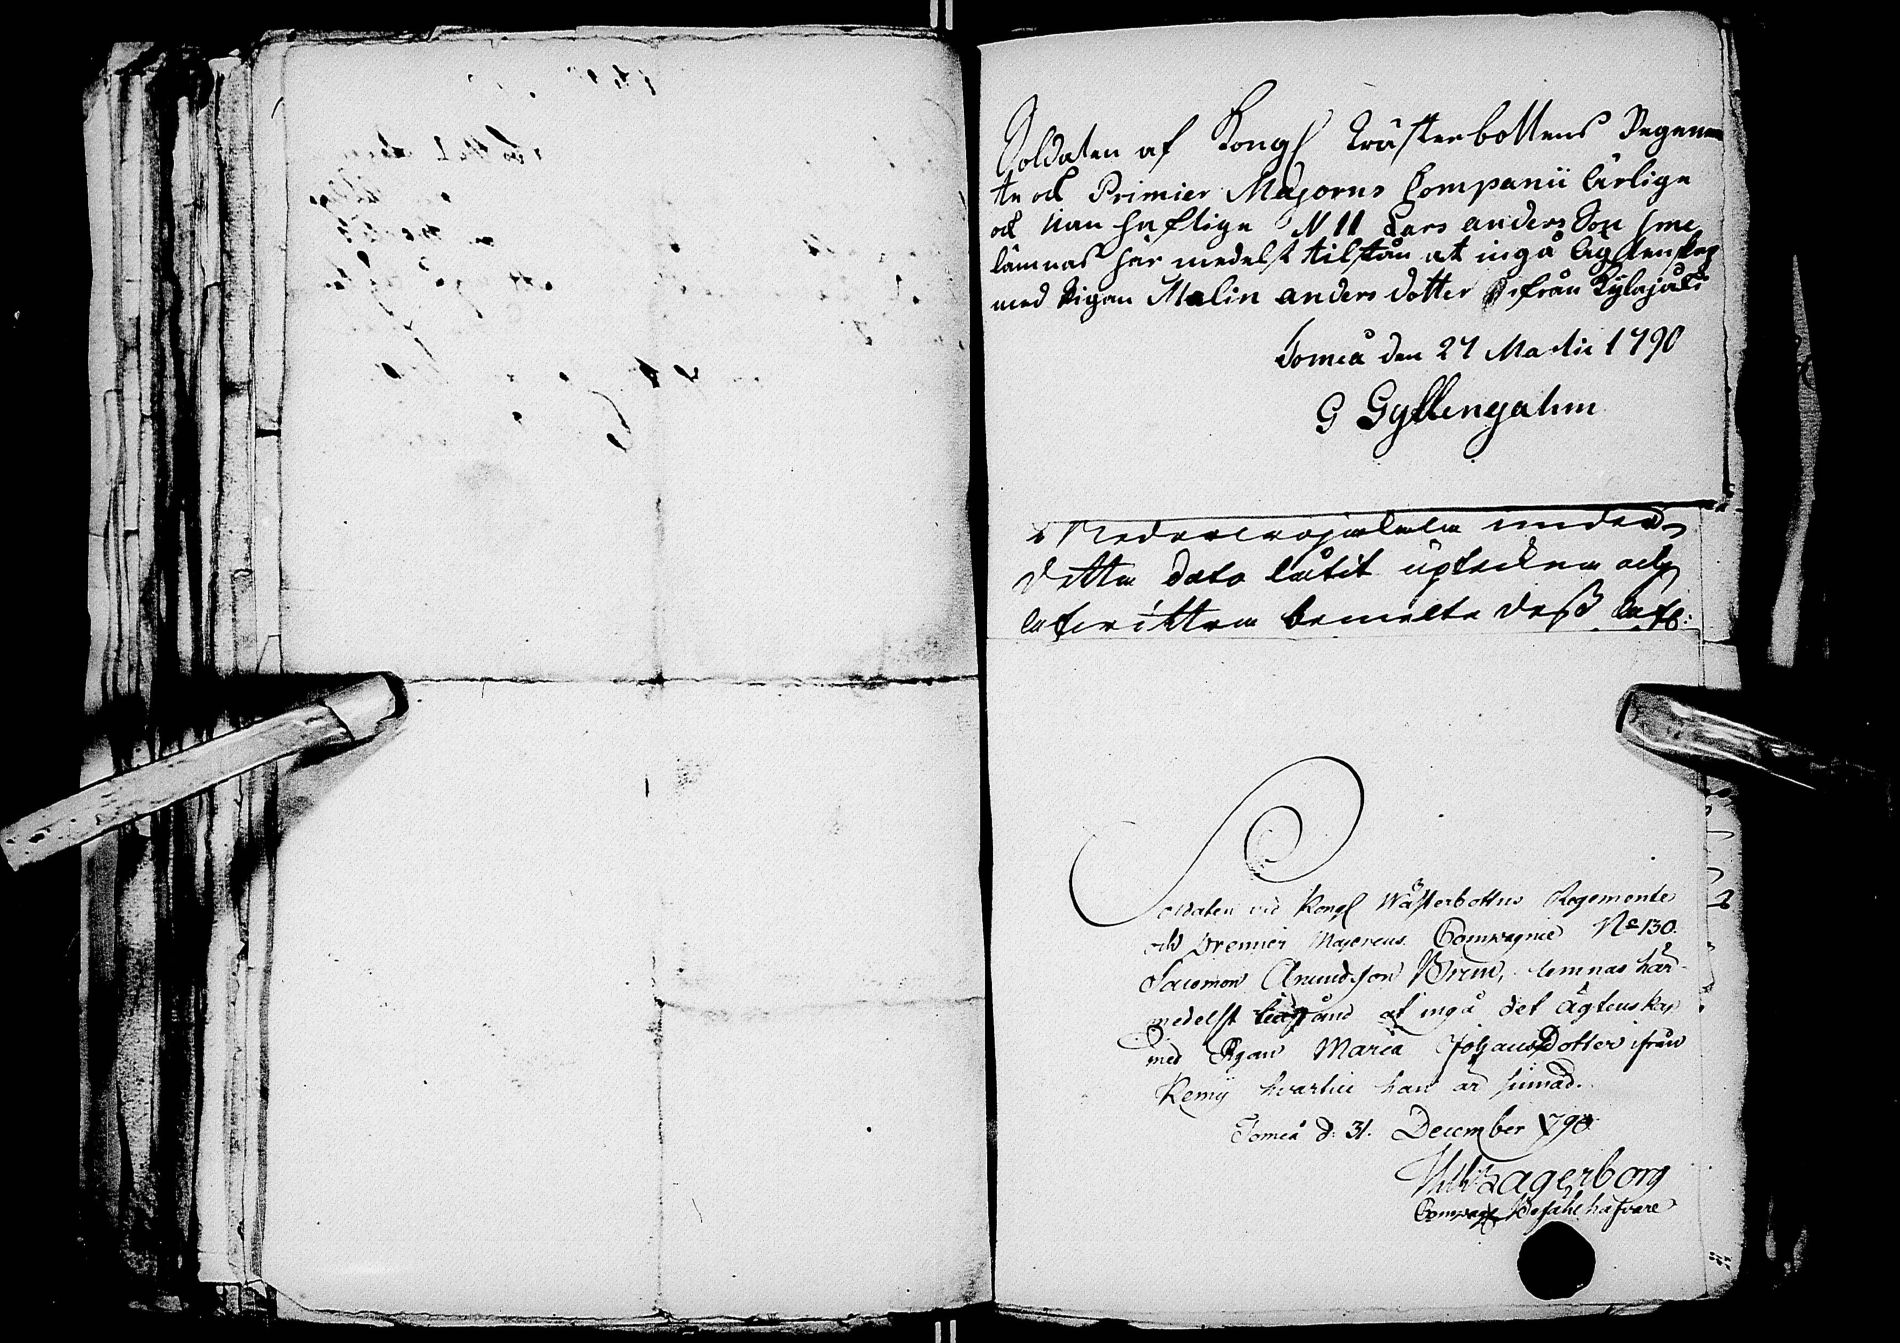 Soldaten af Kongl Wästerbottens Regeme
te och Primier Majorns Companii ärlige
och Man haftige N 11 Lars anders Son
lämnas här medelst tilstån at ingå ägtenskap
med Pigan Malin anders dotter ifrån Kylajoki
Torneå den 27 Martii 1790
G Gyllengahm
under
detta dato låtit upteckna och
efterrättan bemelte deß
Soldaten vid Kongl Wästerbottns Regemente
och Premier Majorens Compagnie No 130.
Salomon Anundsson Brun, lemnas här-
medelst tilstånd at ingå det ägtenskap
med Pigan Maria JohansDotter ifrån
Kemij hvartil han är sinnad.
Torneå d. 31. December 1790
Lagerborg
Compagn Befählhafvare